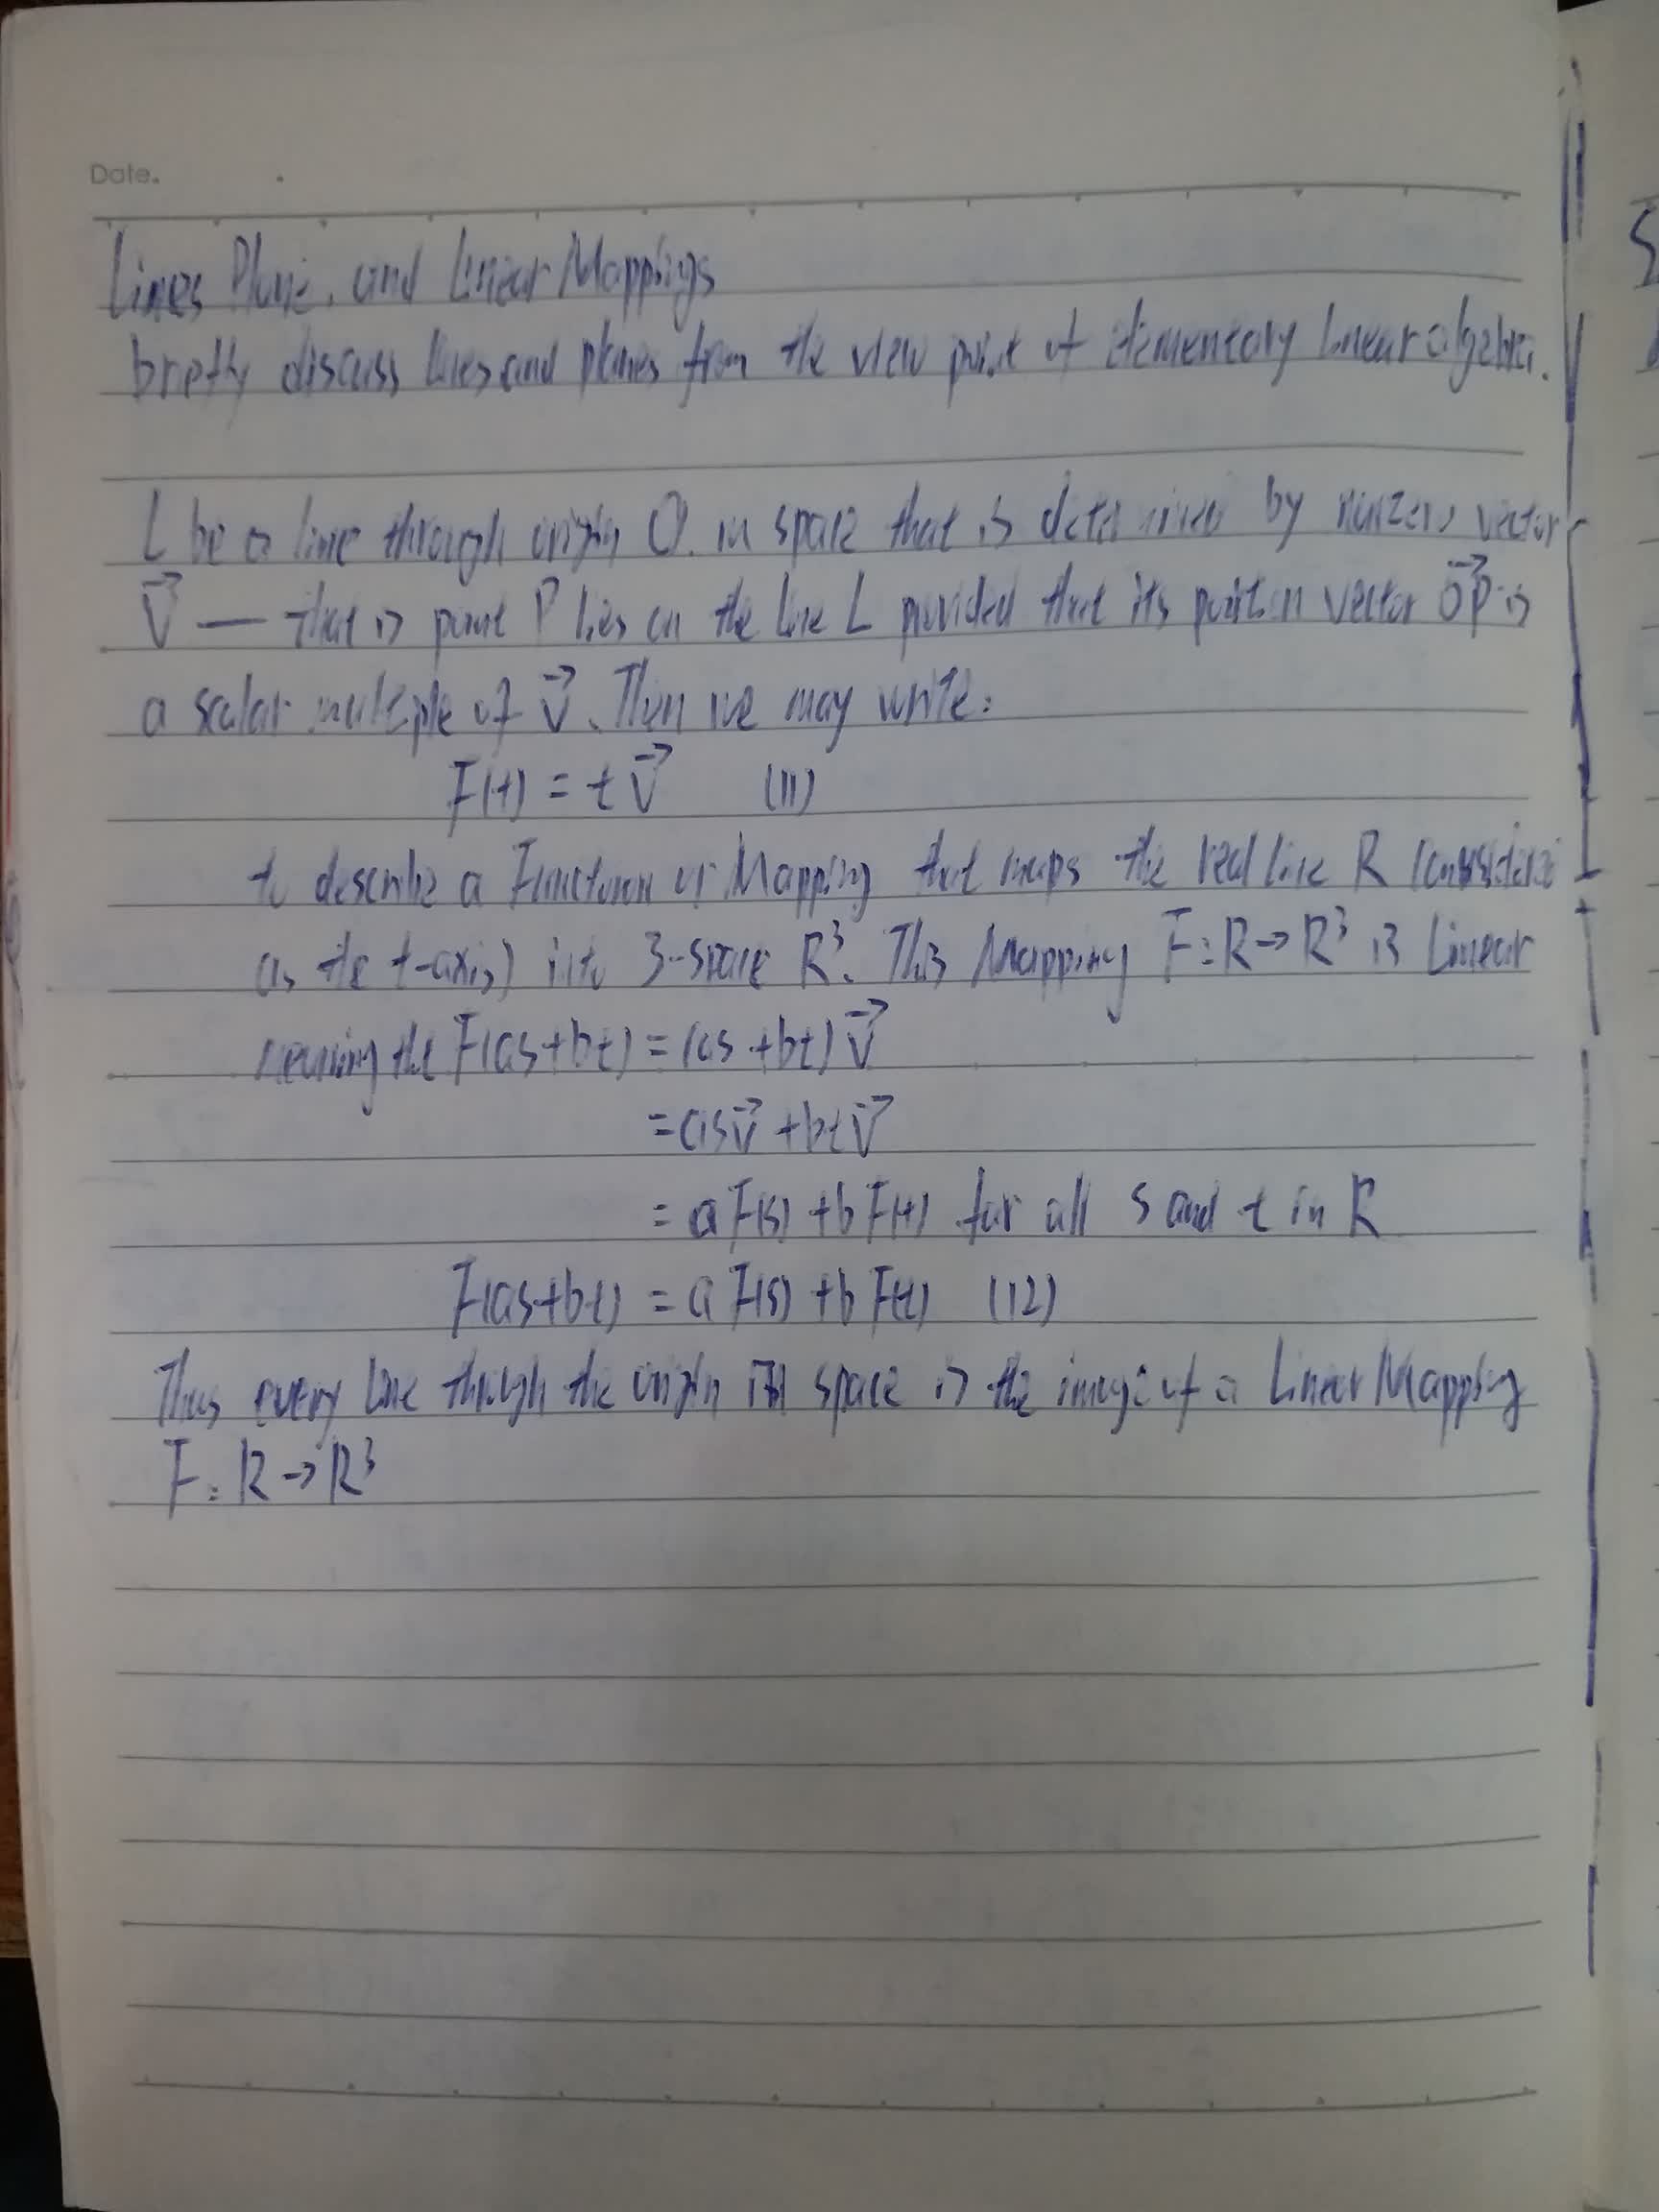 Date.
Lines Plane, and Linear Mappings
briefly discuss lines and planes from the view point of elementary linear algebra.
L be a line through origin O. in space that is determined by nonzero vector
V⃗ — that is point P lies on the line L provided that its position vector OP⃗ is
a scalar multiple of V⃗. Then we may write:
F(t) = tV⃗ (11)
to describe a Function or Mapping that maps the real line R (considered
as the t-axis) into 3-space R³. This Mapping F: R→R³ is Linear
meaning the F(as+bt) = (as+bt)V⃗
=asV⃗ +btV⃗
= aF(s) +bF(t) for all s and t in R
F(as+bt) = aF(s) +bF(t) (12)
Thus every line through the origin in space is the image of a Linear Mapping
F: R→R³